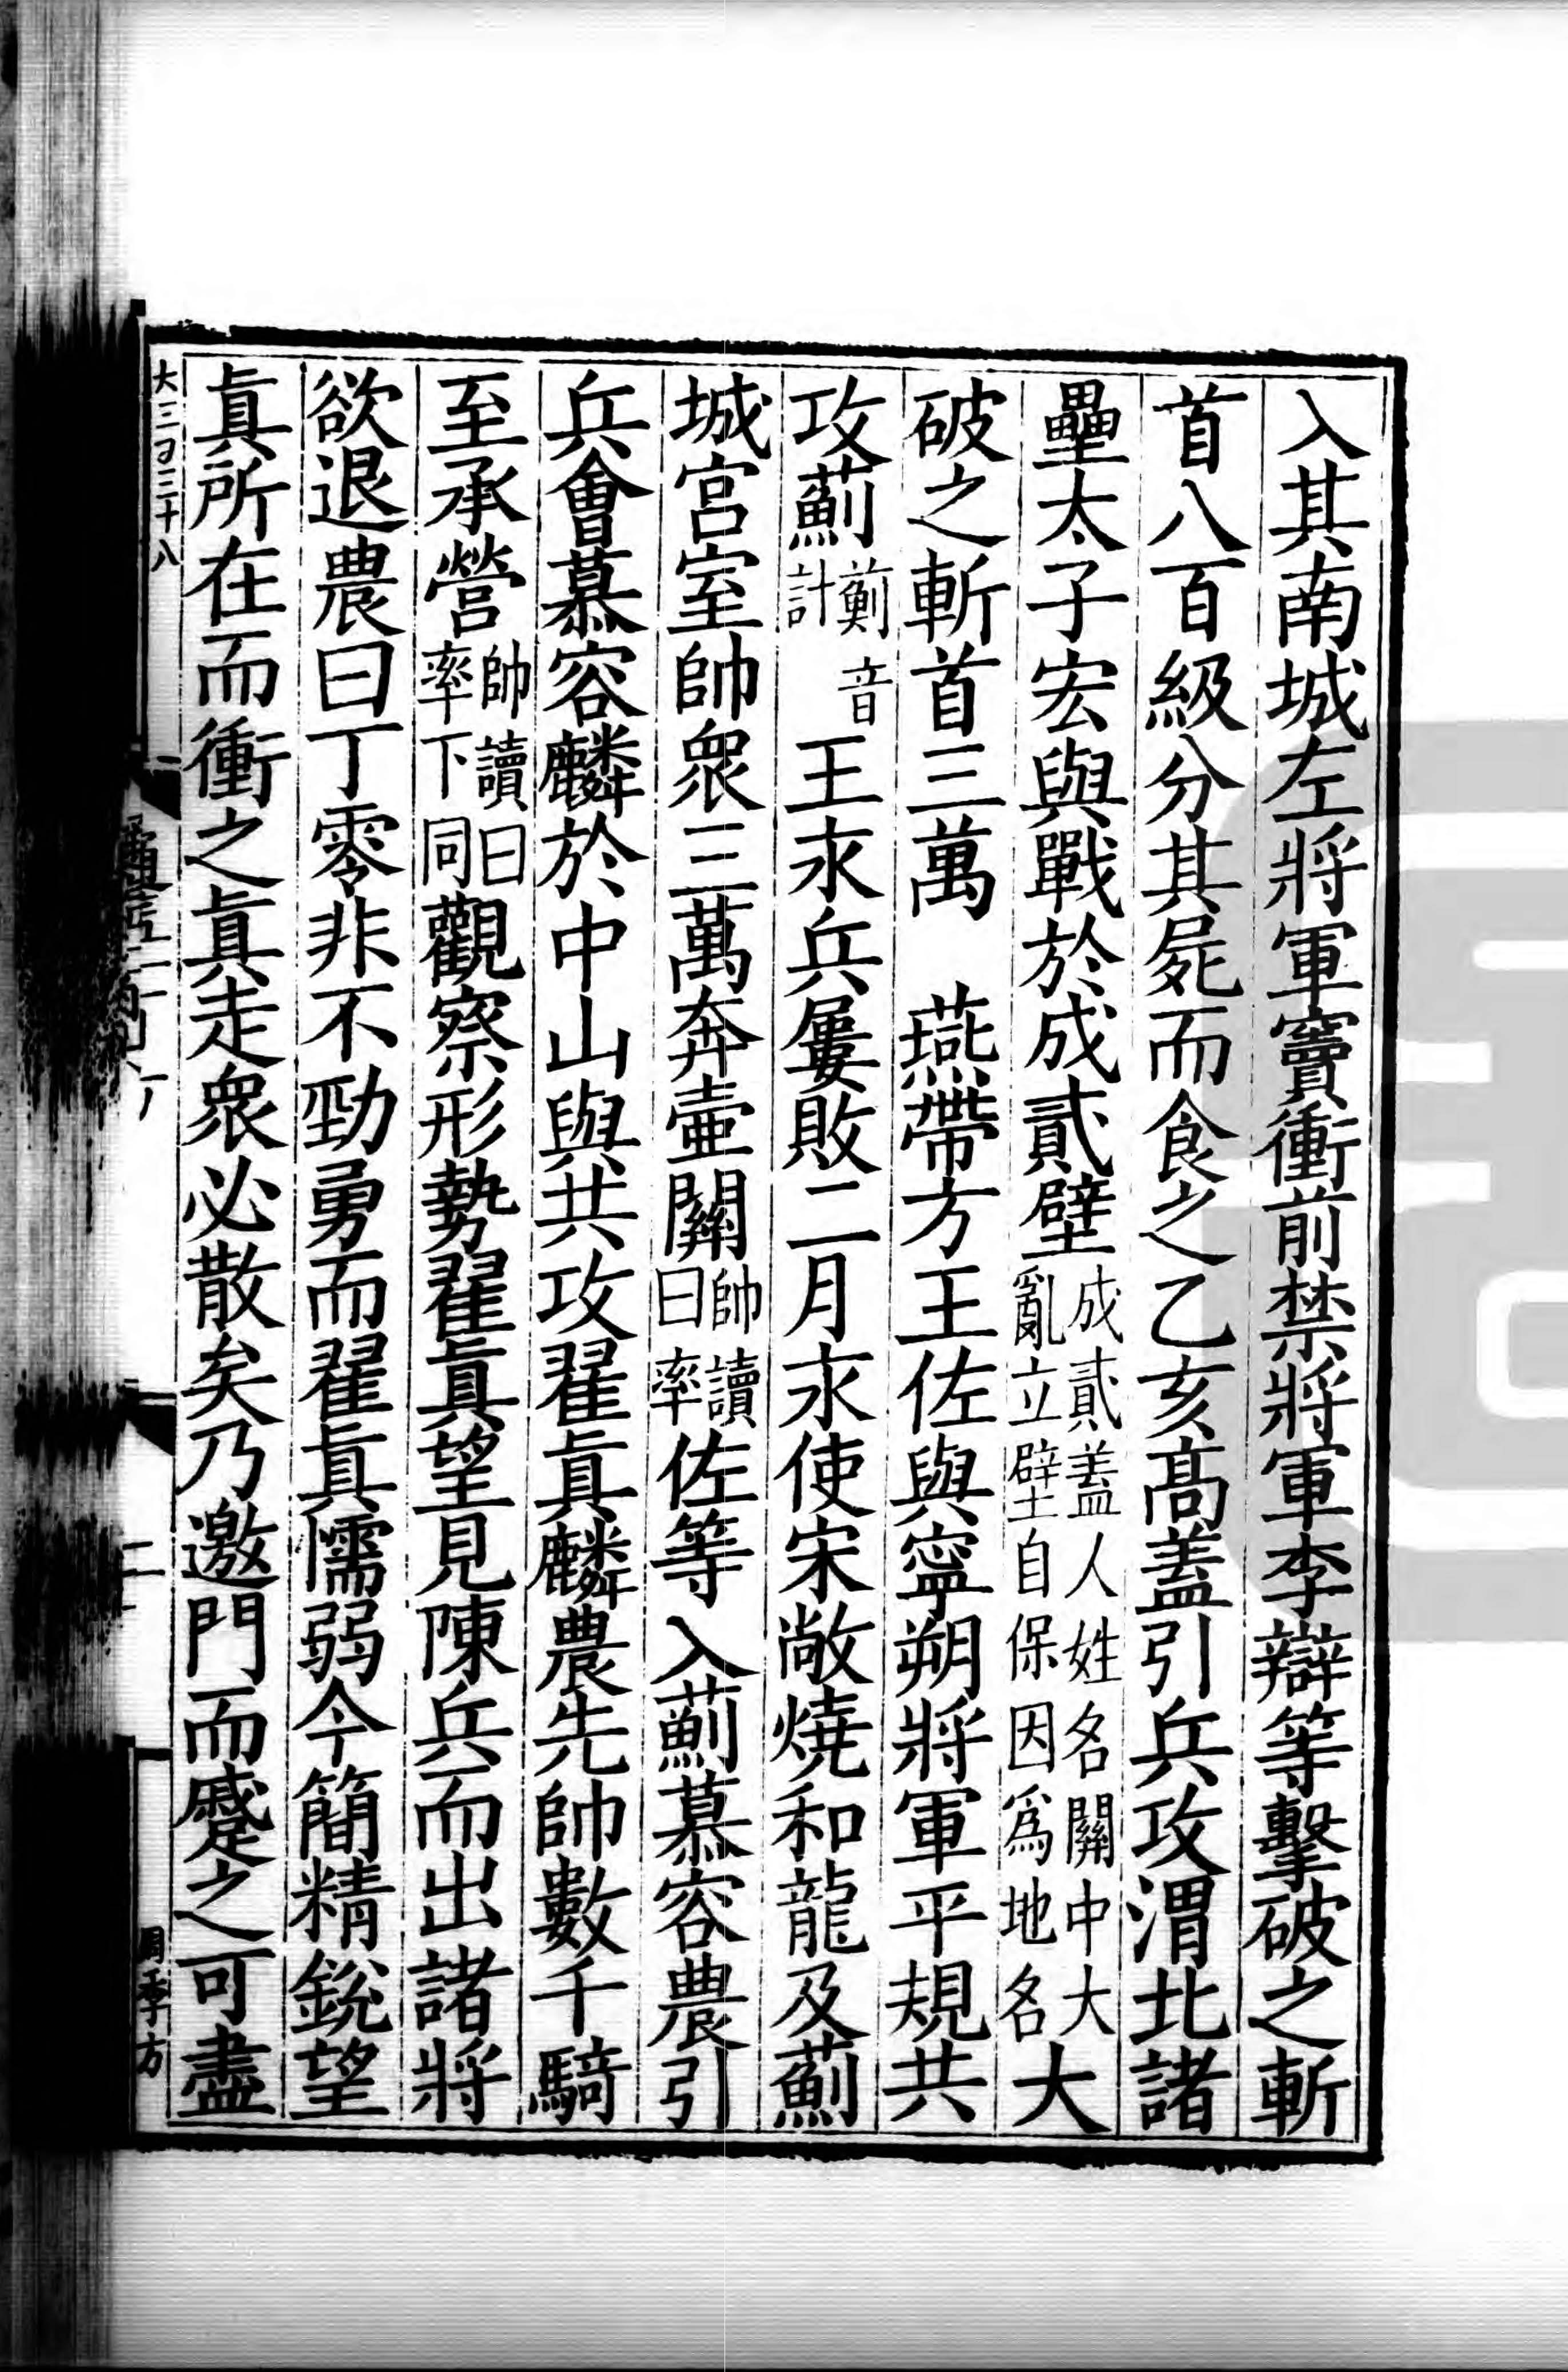 入其南城左將軍竇衝前禁將軍李辯等擊破之斬
首八百級分其屍而食之乙亥髙蓋引兵攻渭北諸
壘太子宏與戰於成貳壁成貳蓋人姓名關中大亂立壁自保因爲地名大
破之斬首三萬　燕帶方王佐與寧朔將軍平規共
攻薊薊音計王永兵屢敗二月永使宋敞燒和龍及薊
城宮室帥衆三萬奔壺關帥讀曰率佐等入薊慕容農引
兵會慕容麟於中山與共攻翟眞麟農先帥數千騎
至承營帥讀曰率下同觀察形勢翟眞望見陳兵而出諸將
欲退農曰丁零非不勁勇而翟眞懦弱今簡精銳望
眞所在而衝之眞走衆必散矣乃邀門而蹙之可盡
大三百三十八
二
周季方